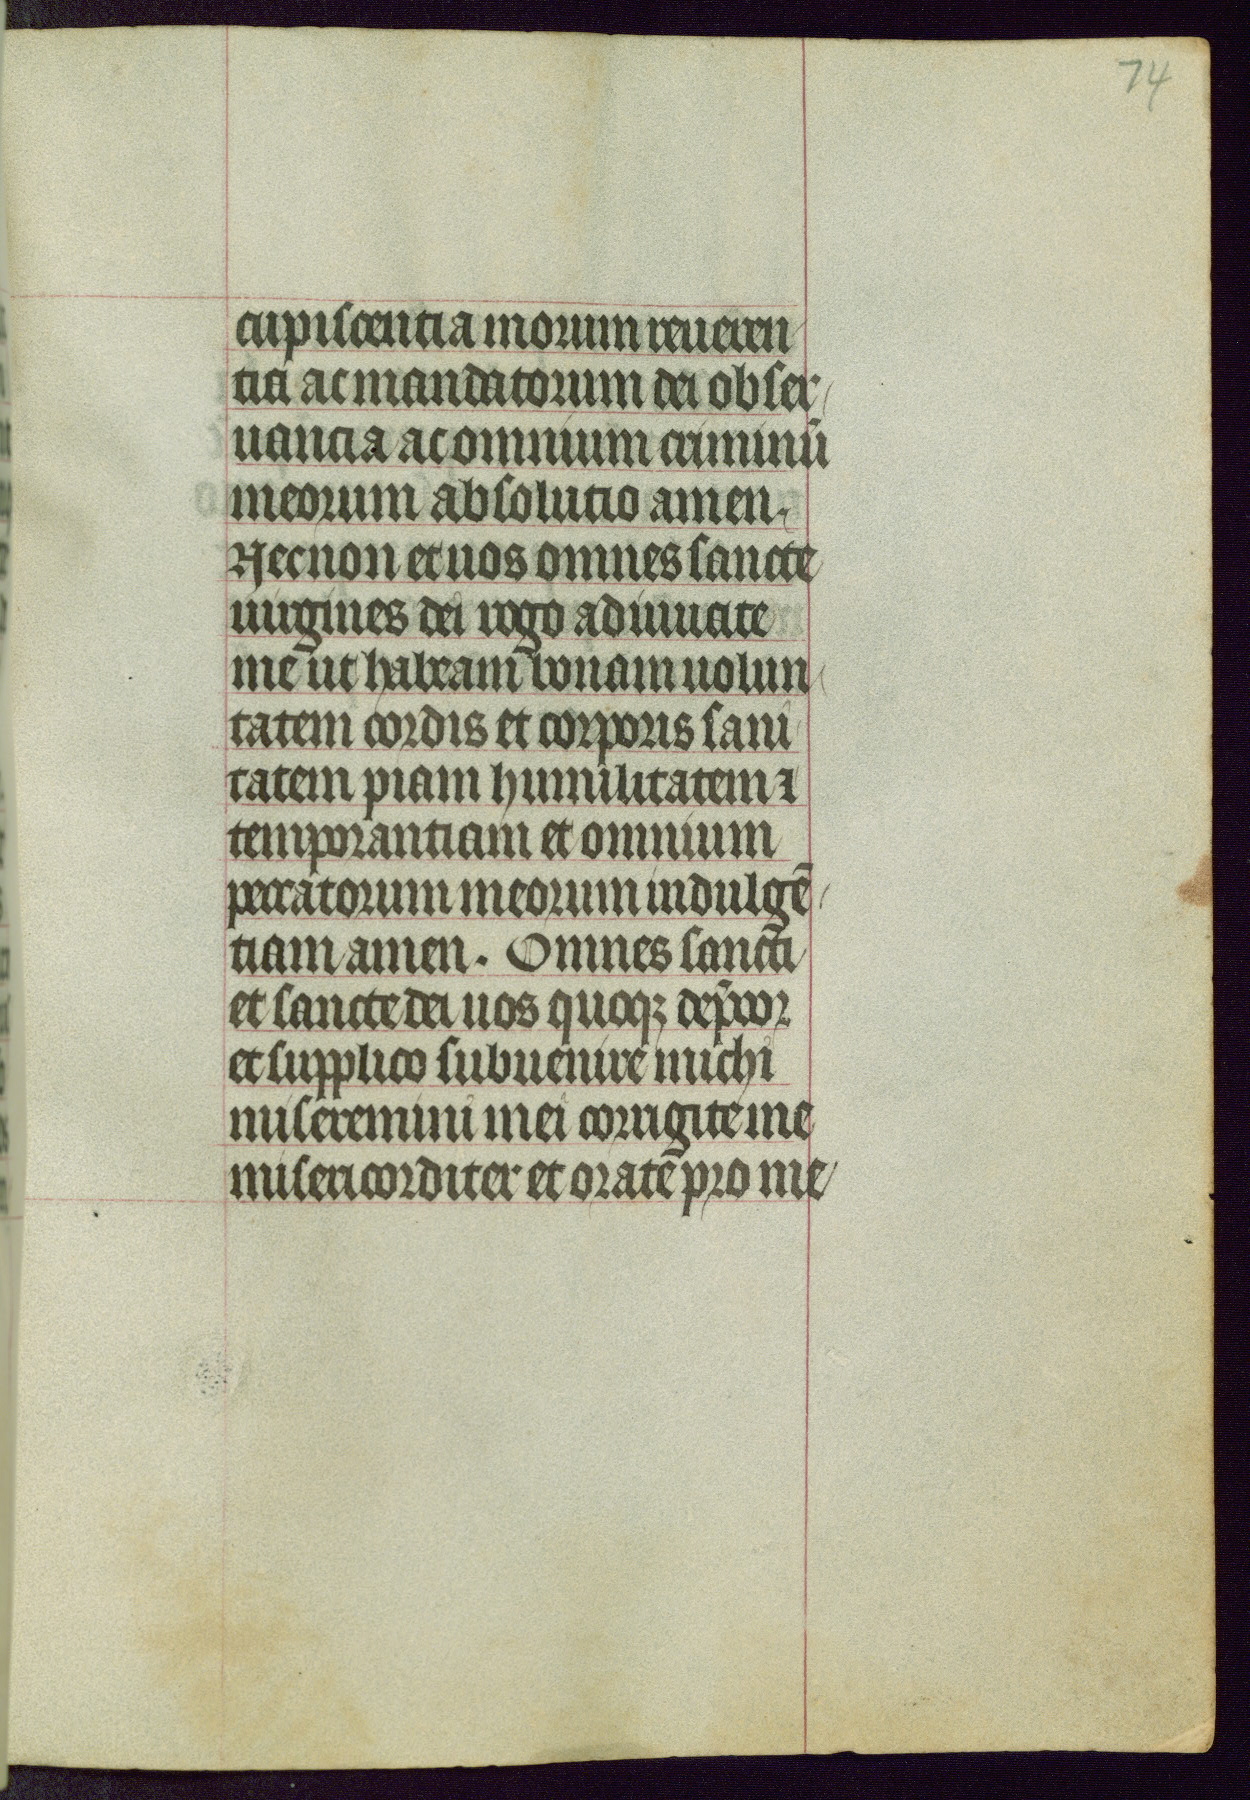 74
cupiscentia morum reueren
tia ac mandatorum dei obser
uancia ac omnium criminū
meorum absolutio amen.
Necnon et uos omnes sancte
uirgines dei rogo adiuuate
me ut habeam bonam uolun
tatem cordis et corporis sani
tatem piam humilitatem ⁊
temporantiam et omnium
peccatorum meorum indulgē
tiam amen. Omnes sancti
et sancte dei uos quoqꝫ dep̄cor
et supplico subuenire michi
miseremini mei corrigite me
misericorditer et orate pro me